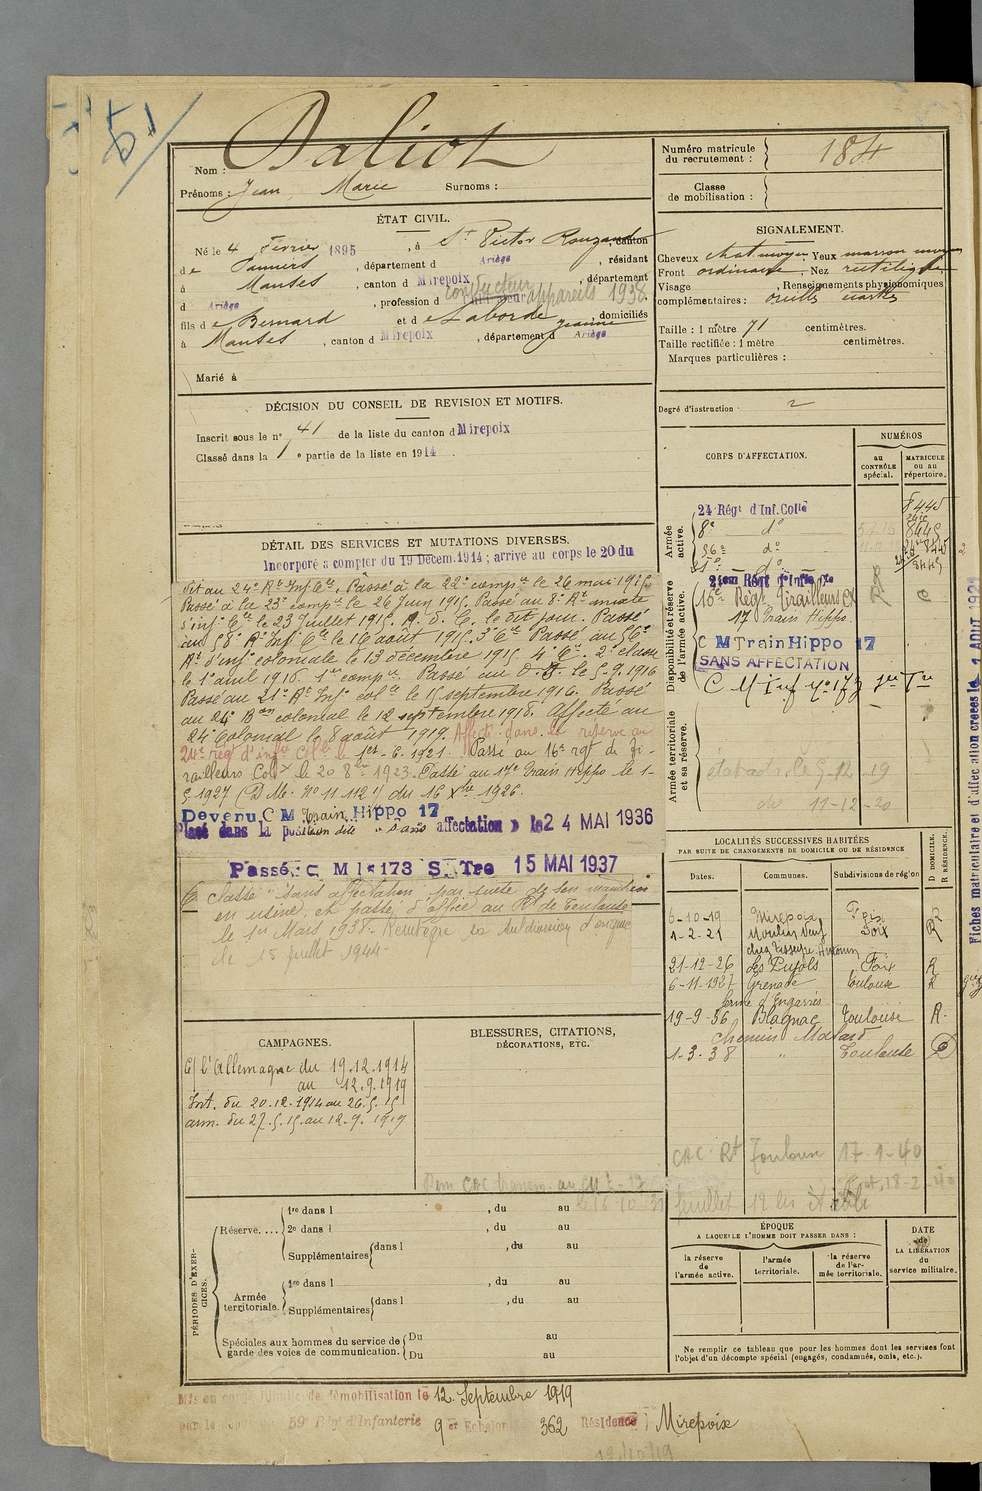 51
Nom : Daliot
Prénoms : Jean Marie Surnoms :
Numéro matricule du recrutement : 184
Classe de mobilisation :
ÉTAT CIVIL.
Né le 4 Février 1895, à St Victor Rouzaud canton
de Pamiers, département d Ariège, résidant
à Manses, canton d Mirepoix, département
d Ariège, profession d conducteur appareils 1938
fils de Bernard et de Laborde Jeanne, domiciliés
à Manses, canton d Mirepoix, département d Ariège
Marié à
SIGNALEMENT.
Cheveux chat moyen Yeux marron moyen
Front ordinaire, Nez rectiligne
Visage , Renseignements physionomiques
complémentaires : oreilles écartées
Taille : 1 mètre 71 centimètres.
Taille rectifiée : 1 mètre centimètres.
Marques particulières :
Degré d'instruction : 2
DÉCISION DU CONSEIL DE REVISION ET MOTIFS.
Inscrit sous le n° 41 de la liste du canton d Mirepoix
Classé dans la 1e partie de la liste en 1914.
DÉTAIL DES SERVICES ET MUTATIONS DIVERSES.
Incorporé à compter du 19 Decem. 1914 ; arrivé au corps le 20 du
dit au 24e Rt Inf Cle. Passé à la 22e compie le 26 mai 1915
Passé à la 23e compie le 26 Juin 1915. Passé au 8e Rt mixte
d'infie Cle le 23 Juillet 1915. A. D. C. le dit jour. Passé
au 58e Rt Infie Cle le 16 août 1915. 3e Cie Passé au 56e
Rt d'infie coloniale le 13 décembre 1915 4e Cie. 2e classe
le 1er avril 1916. 1e compie. Passé au D. le 5.9.1916
Passé au 21e Rt Infie colle le 15 septembre 1916. Passé
au 24e Bon colonial le 12 septembre 1918. Affecté au
24e Colonial le 8 août 1919. Affecté dans la réserve au
24e régt d'infie Colle le 1er. 6. 1921. Passé au 16e rgt de Ti-
railleurs Colx le 20 8bre 1923. Passé au 17e Train Hippo le 1-
5-1927 (D M. No 11.112 1/) du 16 Xbre 1926.
Devenu C M Train Hippo 17
Placé dans la position dite "sans affectation" le 24 MAI 1936
Passé C M I 173 S. Tre 15 MAI 1937
Classé "sans affectation" par suite de son maintien
en usine, et passé d'office au Rt de Toulouse
le 1er Mars 1938. Réintègre la subdivision d'origine
le 15 juillet 1944.
CORPS D'AFFECTATION.
NUMÉROS
au CONTRÔLE spécial.
MATRICULE ou au répertoire.
Armée active.
24 Régt d'Inf. Colle
8e do
56e do
21e do
8445
Disponibilité et réserve de l'armée active.
24em Régt d'Infie Cle
16e Régt Tirailleurs Cx
17 Train Hippo.
C M Train Hippo 17
SANS AFFECTATION
C M Inf No 173 Sce Tre
Armée territoriale et sa réserve.
11-12-20
LOCALITÉS SUCCESSIVES HABITÉES
PAR SUITE DE CHANGEMENTS DE DOMICILE OU DE RÉSIDENCE
Dates. Communes. Subdivisions de région D DOMICILE. R RÉSIDENCE.
6-10-19 Mirepoix Foix
1-2-21 Moulin Neuf Foix R
21-12-26 Les Pujols Foix R
6-11-1927 Grenade Toulouse R
ferme d'Engarrès
19-9-36 Blagnac Toulouse R.
Chemin Malard
1-3-38 " Toulouse D
CAC Rt Toulouse 17-1-40
CAMPAGNES.
C/ l'Allemagne du 19.12.1914
au 12.9.1919
Int. du 20.12.1914 au 26.5.15
arm. du 27.5.15 au 12.9.1919
BLESSURES, CITATIONS,
DÉCORATIONS, ETC.
PÉRIODES D'EXERCICES.
Réserve.... 1re dans l , du au
2e dans l , du au
Supplémentaires dans l , du au
Armée territoriale. 1re dans l , du au
Supplémentaires dans l , du au
Spéciales aux hommes du service de garde des voies de communication. Du au
Du au
ÉPOQUE
A LAQUELLE L'HOMME DOIT PASSER DANS :
la réserve de l'armée active.
l'armée territoriale.
la réserve de l'armée territoriale.
DATE de LA LIBÉRATION du service militaire.
Ne remplir ce tableau que pour les hommes dont les services font
l'objet d'un décompte spécial (engagés, condamnés, omis, etc.).
Mis en congé illimité de démobilisation le 12 Septembre 1919
par le 59e Régt d'Infanterie 9er Echelon 362 Résidence Mirepoix
12/10/19
Fiches matriculaire et d'affectation créées le 1 AOUT 1922